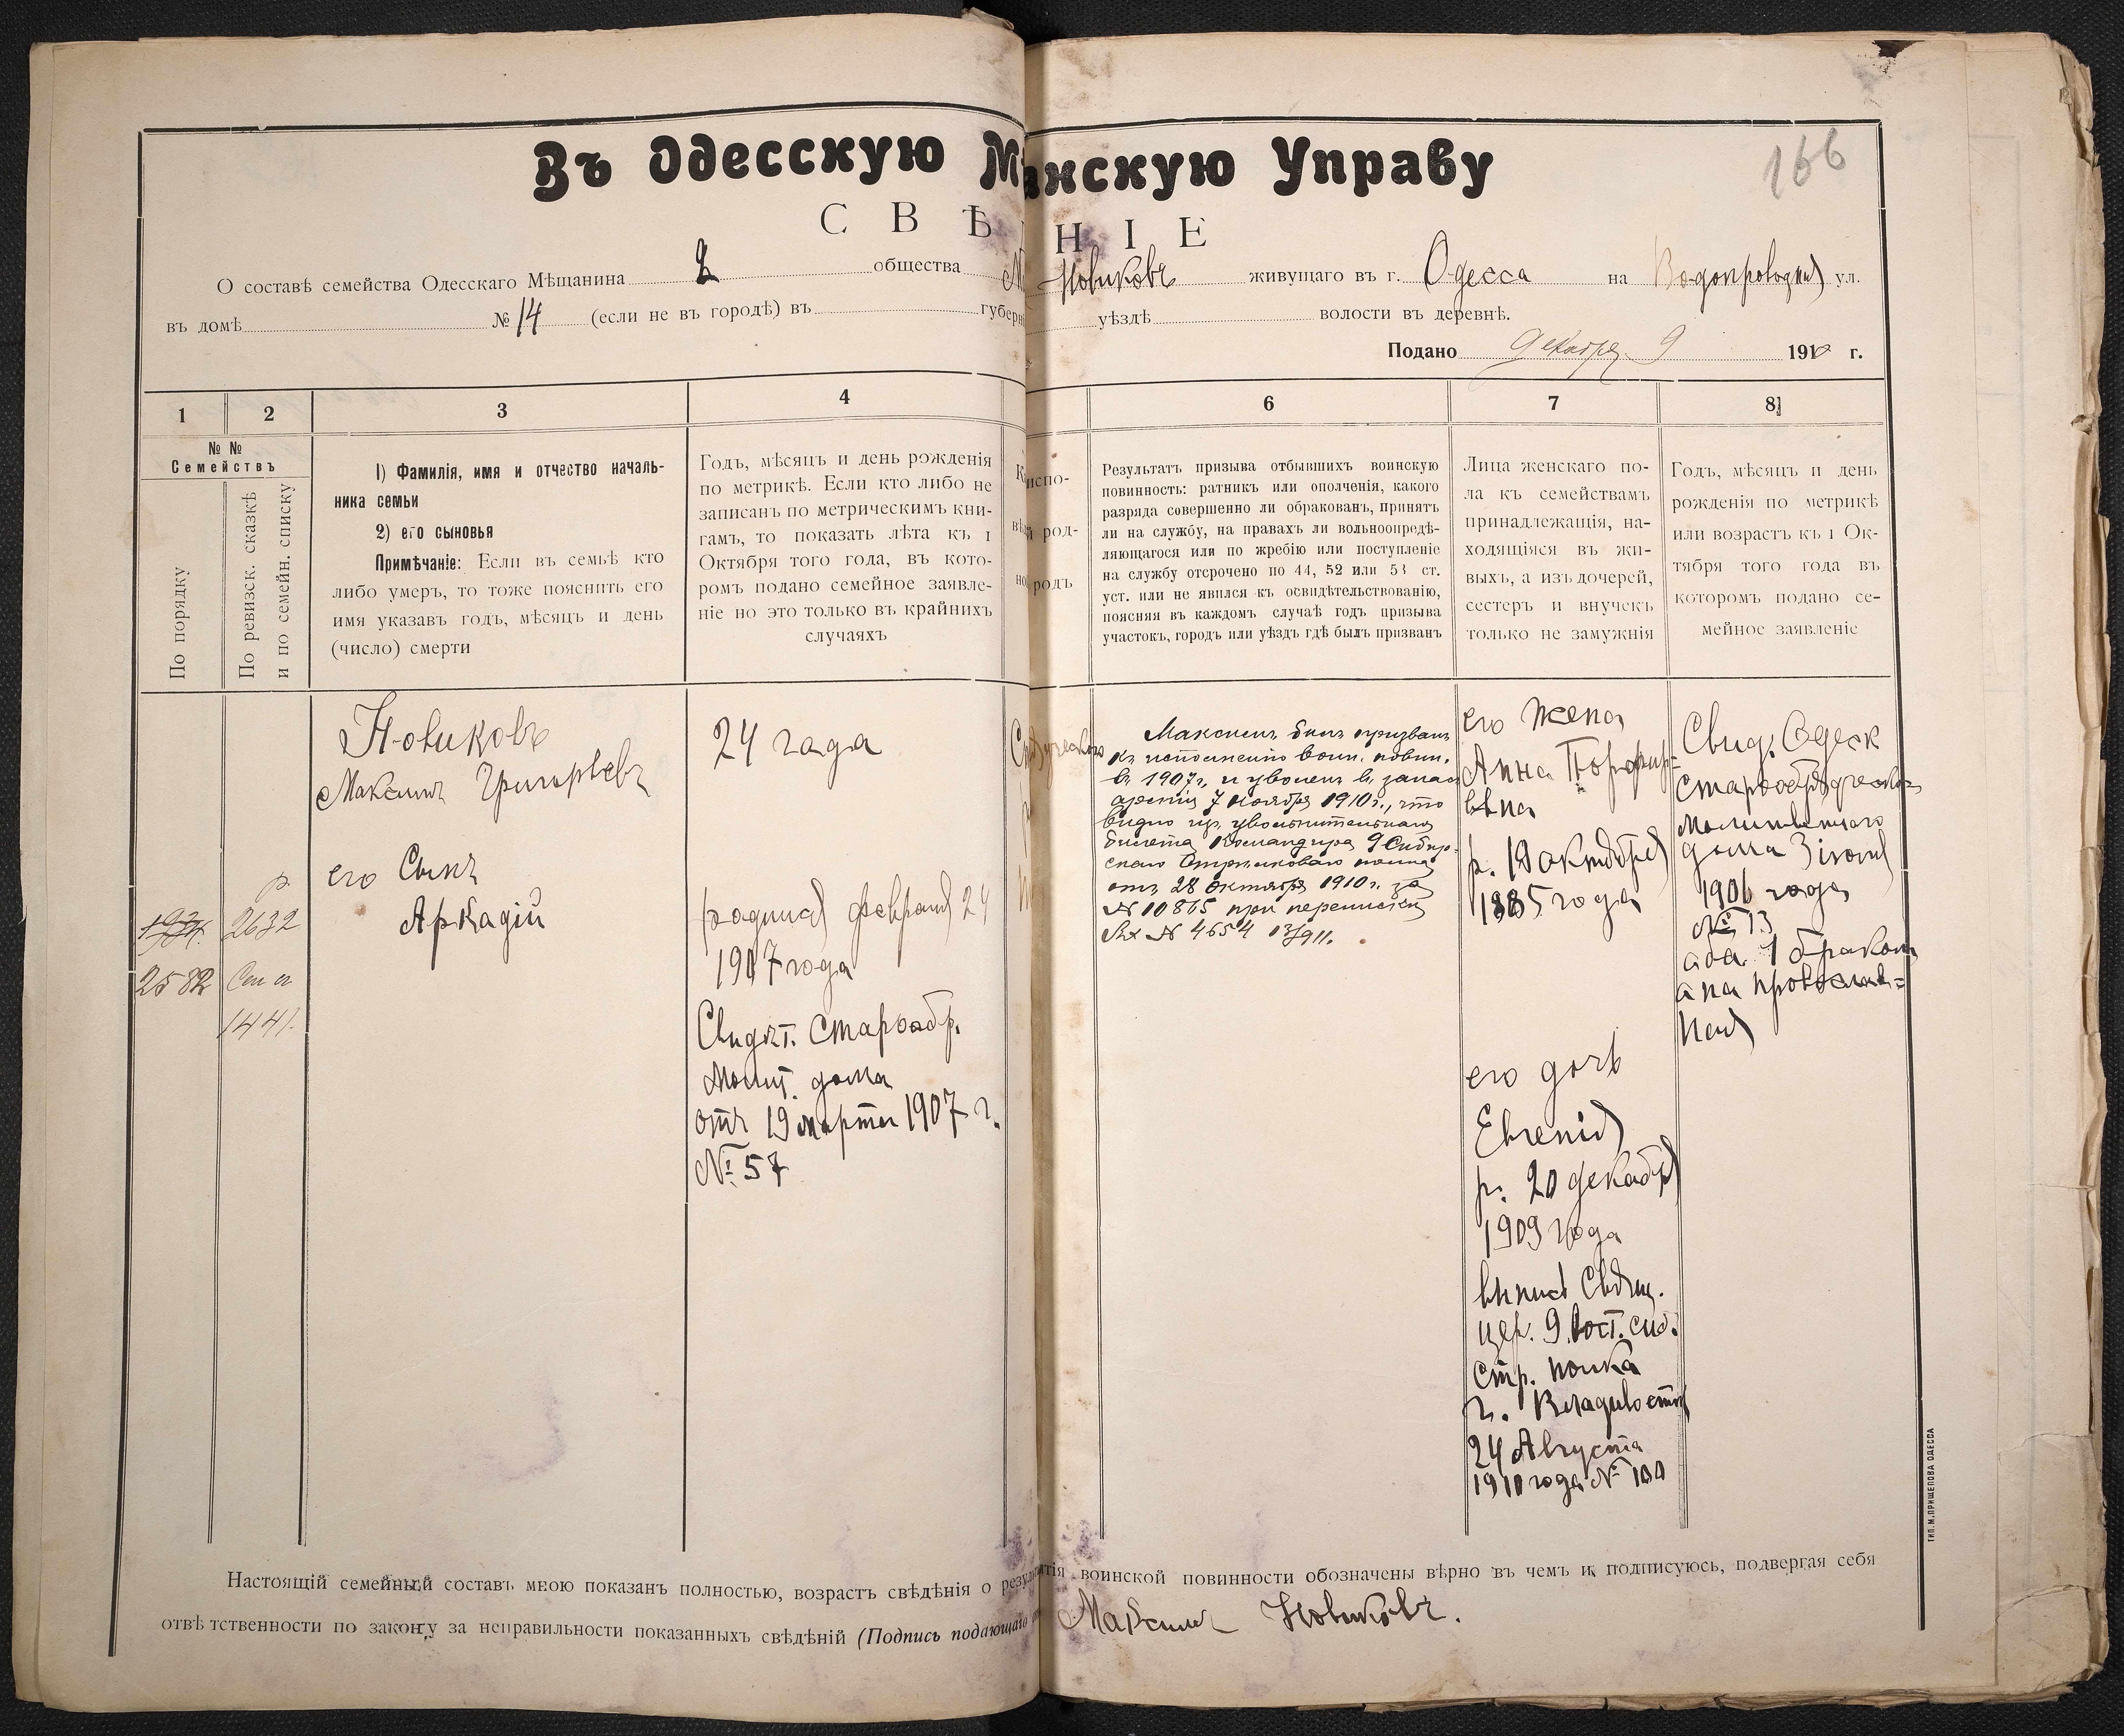 166
Въ Одесскую М анскую Управу
С В Ѣ Н І Е
О составѣ семейства Одесскаго Мѣщанина 2 общества Новиковъ живущаго въ г. Одесса на Водопроводная ул.
въ домѣ № 14 (если не въ городѣ) въ губерн уѣздѣ волости въ деревнѣ.
Подано Декабря 9 1910 г.
1 2 3 4 6 7 8
№ №
Семействъ
По порядку
По ревизск. сказкѣ
и по семейн. списку
1) Фамилія, имя и отчество началь-
ника семьи
2) его сыновья
Примѣчаніе: Если въ семьѣ кто
либо умеръ, то тоже пояснить его
имя указавъ годъ, мѣсяцъ и день
(число) смерти
Годъ, мѣсяцъ и день рожденія
по метрикѣ. Если кто либо не
записанъ по метрическимъ кни-
гамъ, то показать лѣта къ 1
Октября того года, въ кото-
ромъ подано семейное заявле-
ніе но это только въ крайнихъ
случаяхъ
испо-
род-
родъ
Результатъ призыва отбывшихъ воинскую
повинность: ратникъ или ополченія, какого
разряда совершенно ли обракованъ, принятъ
ли на службу, на правахъ ли вольноопредѣ-
ляющагося или по жребію или поступленіе
на службу отсрочено по 44, 52 или 53 ст.
уст. или не явился къ освидѣтельствованію,
поясняя въ каждомъ случаѣ годъ призыва
участокъ, городъ или уѣздъ гдѣ былъ призванъ
Лица женскаго по-
ла къ семействамъ
принадлежащія, на-
ходящіяся въ жи-
выхъ, а изъ дочерей,
сестеръ и внучекъ
только не замужнія
Годъ, мѣсяцъ и день
рожденія по метрикѣ
или возрастъ къ 1 Ок-
тября того года въ
которомъ подано се-
мейное заявленіе
Новиковъ
Максимъ Григорьевъ
его Сынъ
Аркадій
2582
р.
2632
1441.
24 года
родился февраля 24
1907 года
Свидѣт. Старообр.
Молит. дома
отъ 19 марта 1907 г.
№ 57
Максимъ былъ призванъ
къ исполненію воин. повин.
въ 1907 г. и уволенъ въ запасъ
арміи 7 ноября 1910 г., что
видно изъ увольнительнаго
билета Командира 9 Сибир-
скаго Стрѣлковаго полка
отъ 28 октября 1910 г. за
№ 10865 при перепискѣ
Вх № 4654 13/911.
его жена
Анна Порфирь-
евна
р. 18 октября
1885 года
его дочь
Евгенія
р. 20 декабря
1909 года
выпись Свящ.
цер. 9 Вост. сиб.
стр. полка
г. Владивосток
24 Августа
1910 года № 100
Свид. Одеск
старообрядческаго
Молитвеннаго
дома 3 іюня
1906 года
№ 13
оба 1 бракомъ
она православ-
ная
Настоящій семейный составъ мною показанъ полностью, возрастъ свѣдѣнія о резул тія воинской повинности обозначены вѣрно въ чемъ и, подписуюсь, подвергая себя
отвѣтственности по закону за неправильности показанныхъ свѣдѣній (Подпись подающаго Максимъ Новиковъ.
ТИП. М. ПРИЩЕПОВА ОДЕССА